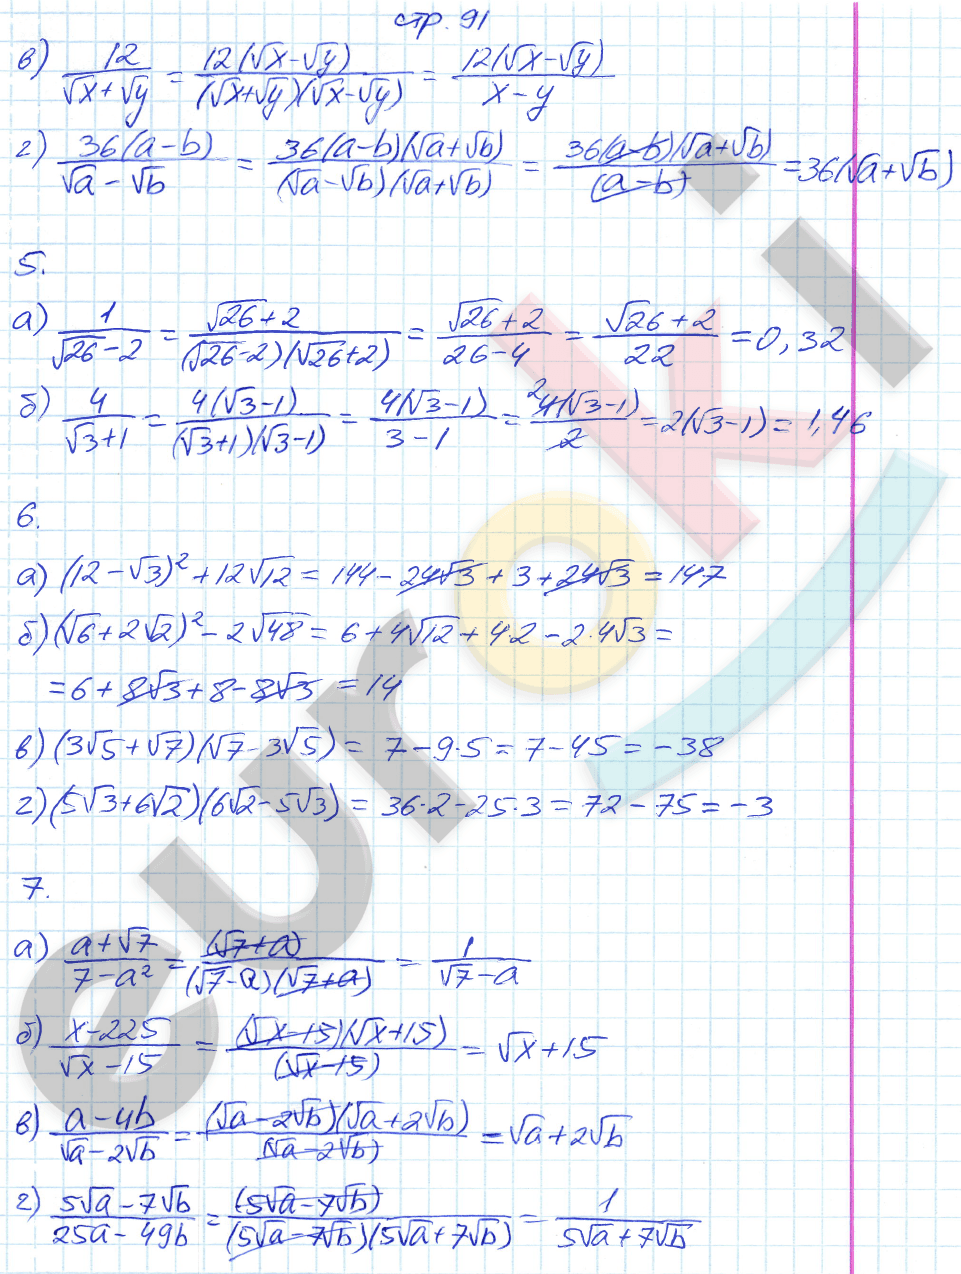 стр. 91
в) 12/(√x+√y) = 12(√x-√y)/((√x+√y)(√x-√y)) = 12(√x-√y)/(x-y)
г) 36(a-b)/(√a-√b) = 36(a-b)(√a+√b)/((√a-√b)(√a+√b)) = 36(a-b)(√a+√b)/(a-b) = 36(√a+√b)
5.
а) 1/(√26-2) = (√26+2)/((√26-2)(√26+2)) = (√26+2)/(26-4) = (√26+2)/22 = 0,32
б) 4/(√3+1) = 4(√3-1)/((√3+1)(√3-1)) = 4(√3-1)/(3-1) = ²4(√3-1)/2 = 2(√3-1) = 1,46
6.
а) (12-√3)² + 12√12 = 144 - 24√3 + 3 + 24√3 = 147
б) (√6+2√2)² - 2√48 = 6 + 4√12 + 4·2 - 2·4√3 =
= 6 + 8√3 + 8 - 8√3 = 14
в) (3√5+√7)(√7-3√5) = 7-9·5 = 7-45 = -38
г) (5√3+6√2)(6√2-5√3) = 36·2-25·3 = 72-75 = -3
7.
а) (a+√7)/(7-a²) = (√7+a)/((√7-a)(√7+a)) = 1/(√7-a)
б) (x-225)/(√x-15) = (√x-15)(√x+15)/(√x-15) = √x+15
в) (a-4b)/(√a-2√b) = (√a-2√b)(√a+2√b)/(√a-2√b) = √a+2√b
г) (5√a-7√b)/(25a-49b) = (5√a-7√b)/((5√a-7√b)(5√a+7√b)) = 1/(5√a+7√b)
euroki